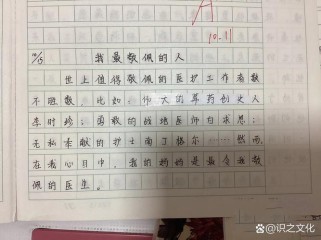 A
10.11
10/15
我最敬佩的人
世上值得敬佩的医护工作者数
不胜数，比如：伟大的草药创史人
李时珍；勇敢的战地医师白求恩；
无私奉献的护士南丁格尔……然而，
在我心目中，我妈妈是最令我敬
佩的医生。
@识之文化